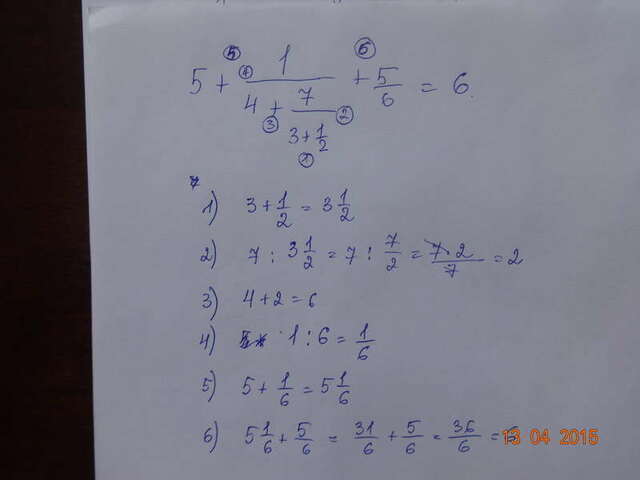 5 + 1/(4 + 7/(3 + 1/2)) + 5/6 = 6.
⑤ ④ ⑥ ③ ② ①
1) 3 + 1/2 = 3 1/2
2) 7 : 3 1/2 = 7 : 7/2 = 7·2/7 = 2
3) 4 + 2 = 6
4) 1 : 6 = 1/6
5) 5 + 1/6 = 5 1/6
6) 5 1/6 + 5/6 = 31/6 + 5/6 = 36/6 = 6
13 04 2015